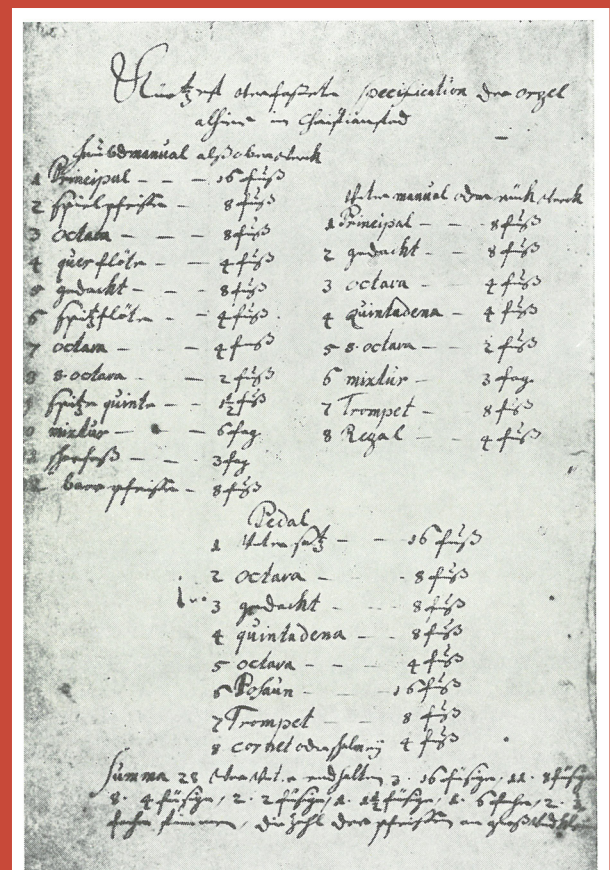 specification der orgel
alhier in Christianstad
haubtmanual alß oberwerk
1 Principal - - - 16 fuß
2 spielpfeiffen - 8 fuß
3 octava - - - 8 fuß
4 querflöte - - 4 fuß
5 gedackt - - - 8 fuß
6 spitzflöte - - 4 fuß
7 octava - - 4 fuß
8 s. octava - - 2 fuß
spitz quinte - - 1½ fuß
mixtur - - - 6 fag
scharff - - 3 fag
baarpfeiffe - 8 fuß
Unter manual oder rück werk
1 Principal - - 8 fuß
2 gedackt - - 8 fuß
3 octava - - 4 fuß
4 quintadena - 4 fuß
5 s. octava - - 2 fuß
6 mixtur - - 3 fag
7 Trompet - - 8 fuß
8 Regal - - 4 fuß
Pedal
1 Untersatz - - 16 fuß
2 octava - - 8 fuß
3 gedackt - - 8 fuß
4 quintadena - - 8 fuß
5 octava - - 4 fuß
6 Posaun - - - 16 fuß
7 Trompet - - 8 fuß
8 cornet oder schalmey 4 fuß
Summa 28 3. 16 füsige, 11. 8 füsige
8. 4 füsige, 2. 2 füsige, 1. 1½ füsige, 1. 6 fache, 2. 3
fache stimmen, die zahl der pfeiffen